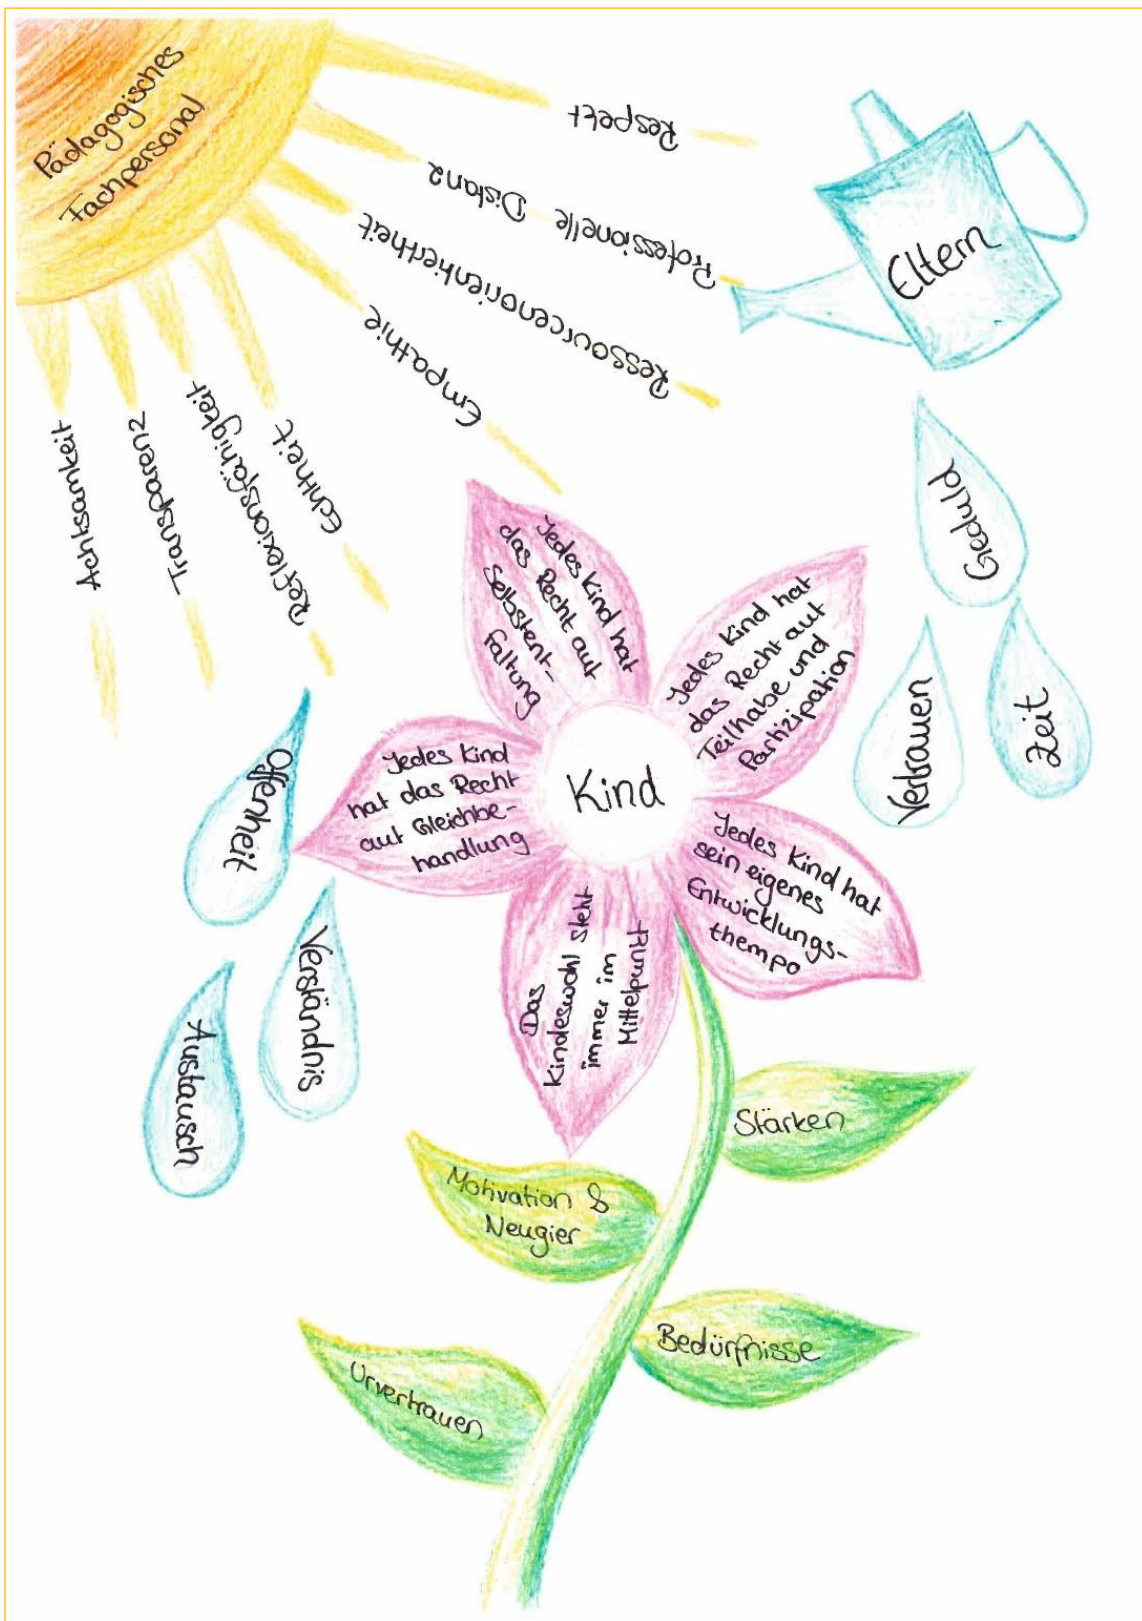 Pädagogisches
Fachpersonal
Respekt
Professionelle Distanz
Ressourcenorientiertheit
Empathie
Echtheit
Reflexionsfähigkeit
Transparenz
Achtsamkeit
Eltern
Geduld
Zeit
Vertrauen
Offenheit
Verständnis
Austausch
Kind
Jedes Kind hat
das Recht auf
Selbstent-
faltung
Jedes Kind hat
das Recht auf
Teilhabe und
Partizipation
Jedes Kind hat
sein eigenes
Entwicklungs-
thempo
Das
Kindeswohl steht
immer im
Mittelpunkt
Jedes Kind
hat das Recht
auf Gleichbe-
handlung
Stärken
Motivation &
Neugier
Bedürfnisse
Urvertrauen